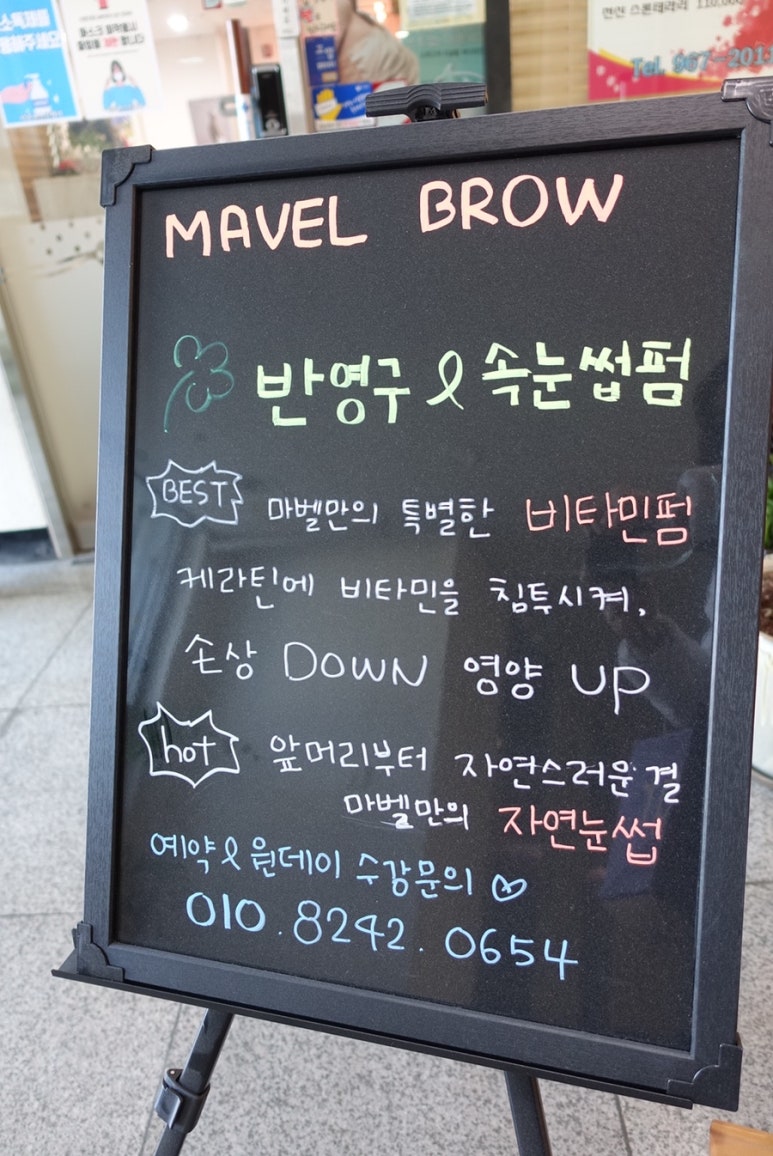 MAVEL BROW
반영구 & 속눈썹펌
BEST 마벨만의 특별한 비타민펌
케라틴에 비타민을 침투시켜,
손상 DOWN 영양 UP
hot 앞머리부터 자연스러운 결
마벨만의 자연눈썹
예약 & 원데이 수강문의 ♡
010.8242.0654